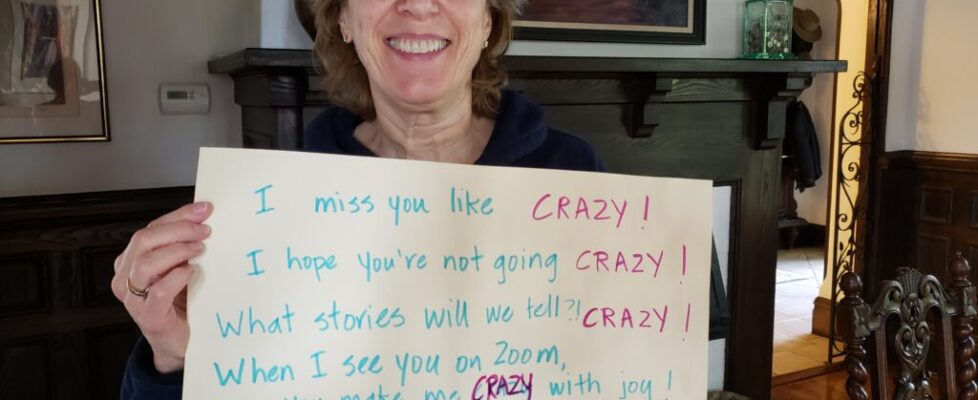 I miss you like CRAZY!
I hope you're not going CRAZY!
What stories will we tell?! CRAZY!
When I see you on Zoom,
you make me CRAZY with joy!